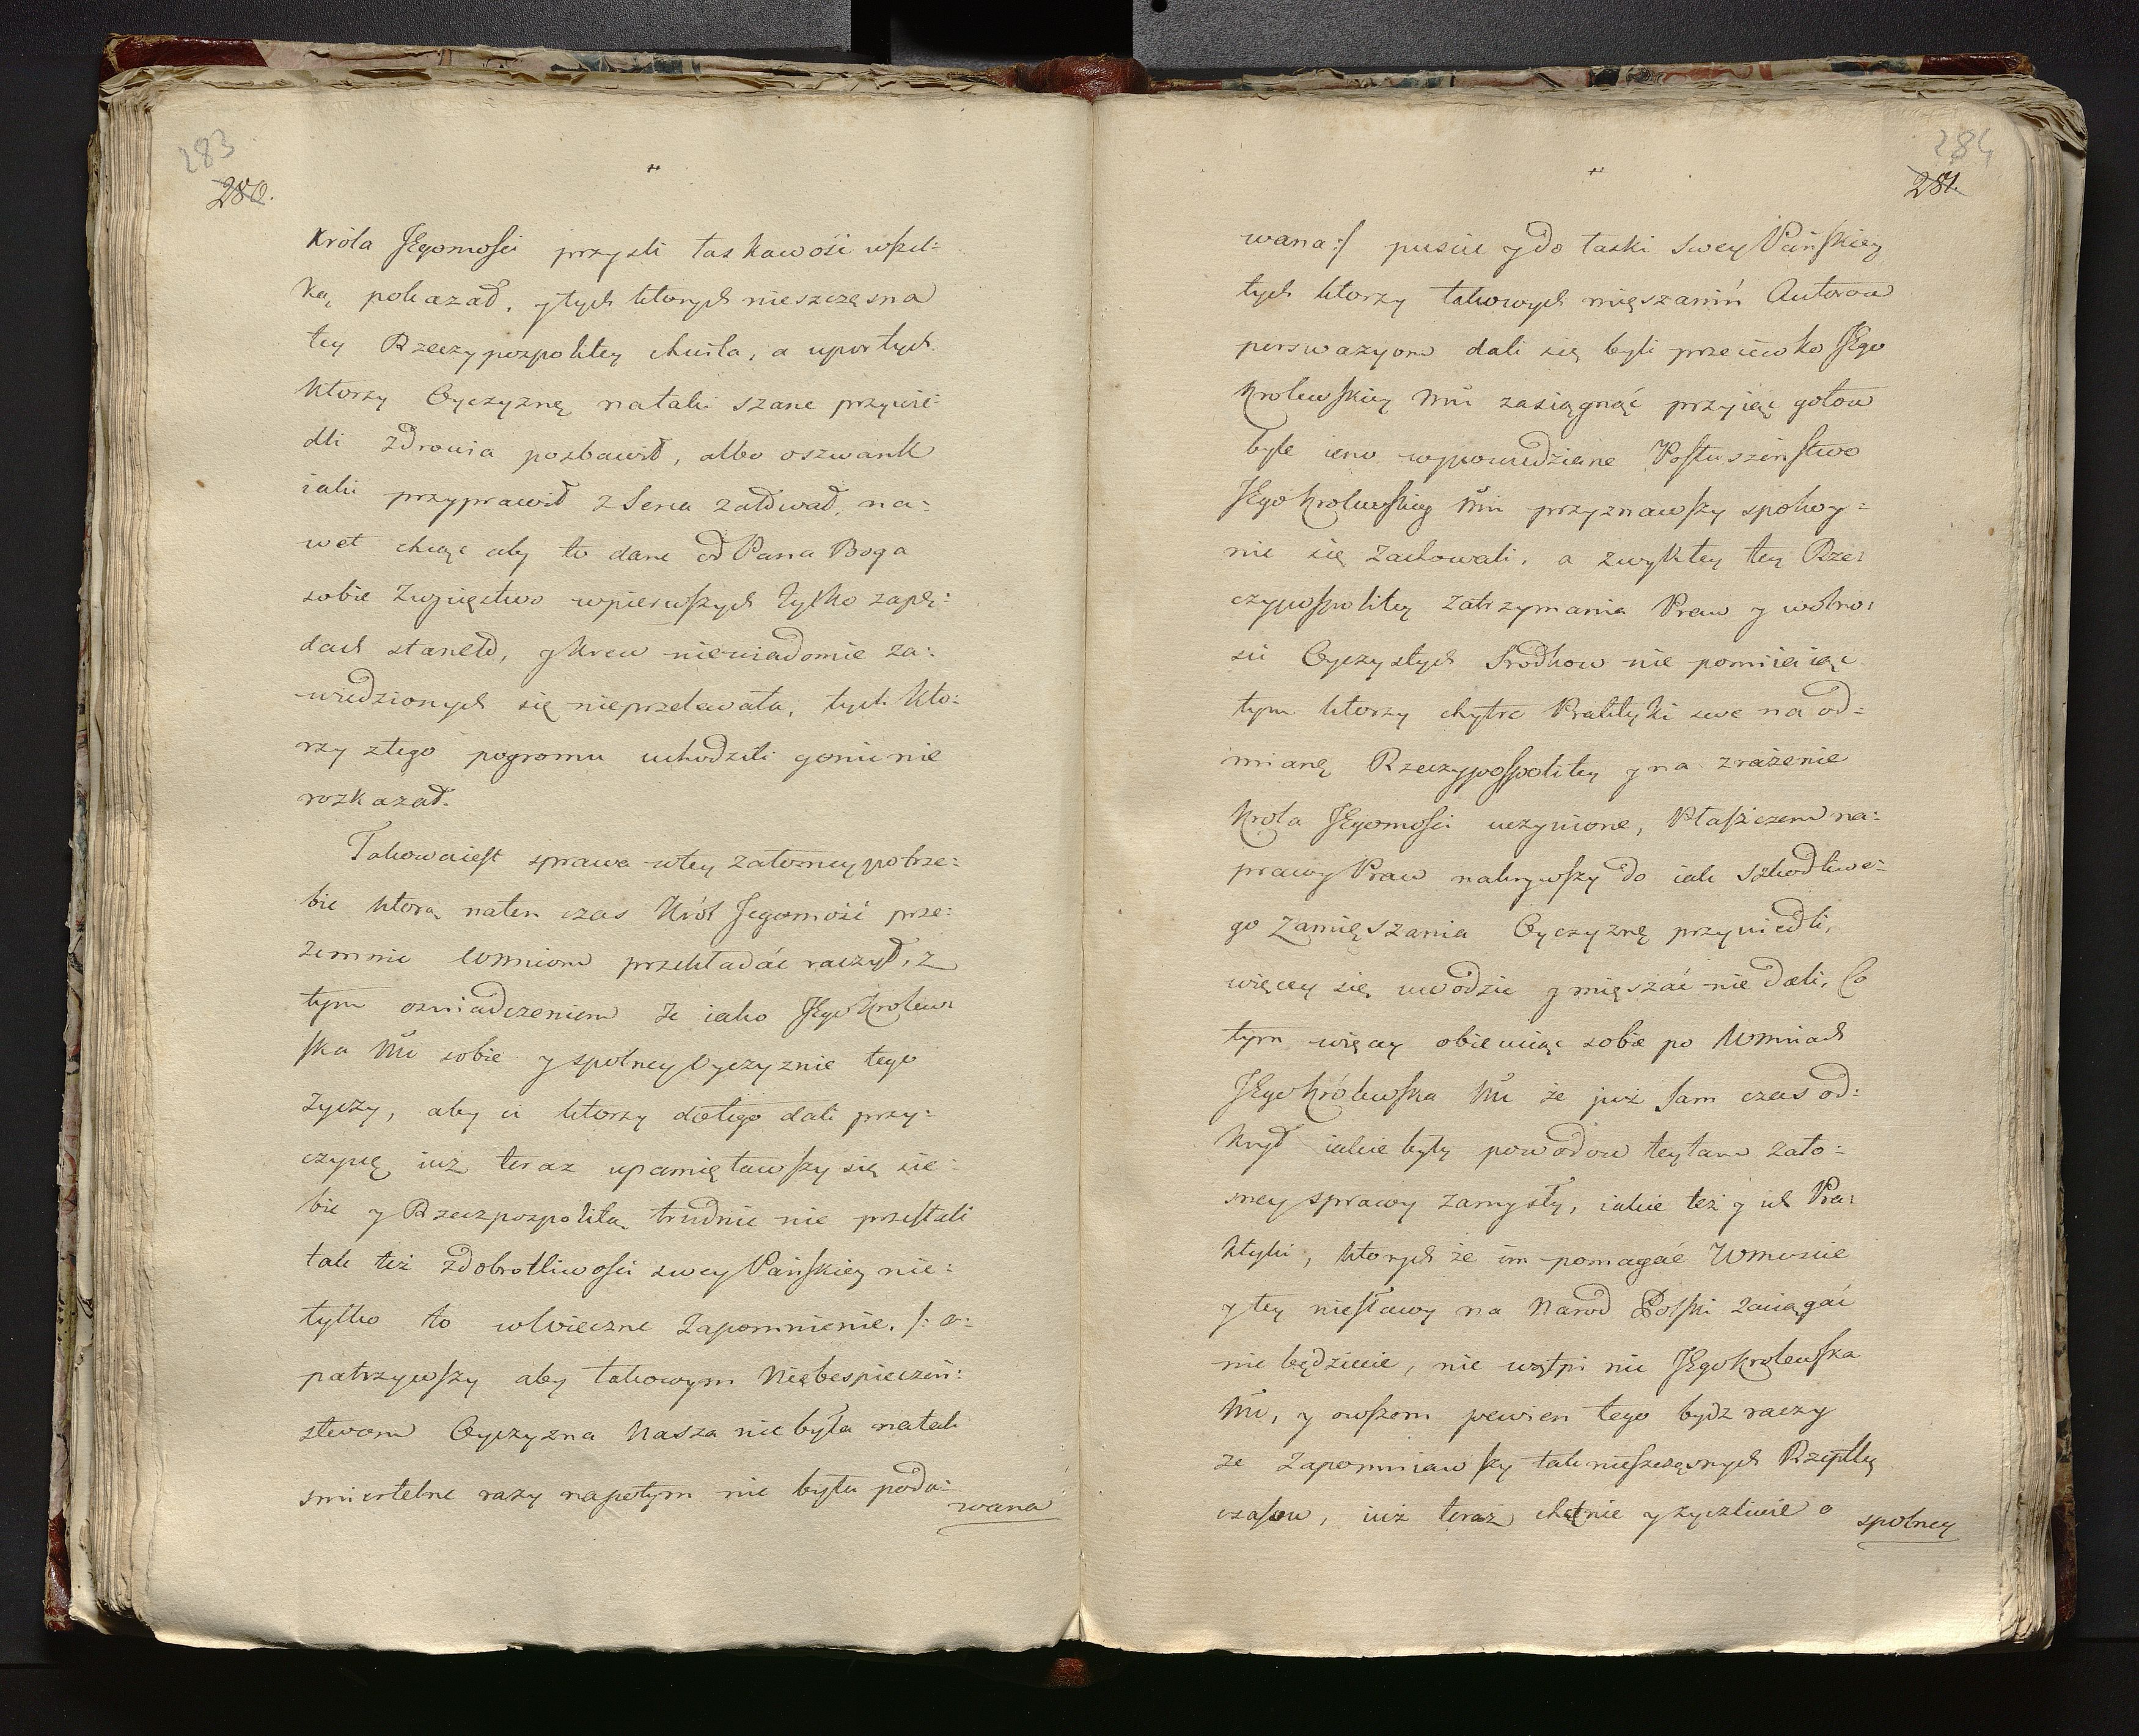 283
280.
Króla JEgomości przyszli łaskawość wszel:
ką pokazał, y tych ktorych nieszczęsna
tey Rzeczypospolitey chwila, a upor tych
ktorzy Oyczyznę na takie szane przywie:
dli zdrowia pozbawił, albo oszwank
iaki przyprawił z Serca załował, na:
wet chcąc aby to dane od Pana Boga
sobie Zwycięstwo w pierwszych tylko zapę:
dach stanęło, y krew niewiadomie za:
wiedzionych się nieprzelewała, tych kto:
rzy z tego pogromu uchodzili gonić nie
rozkazał.
Takowa iest sprawa o tey załosney potrze:
bie ktorą na ten czas Król Jegomość prze:
zemnie WMciom przekładać raczył, z
tym oswiadczeniem Ze iako JEgo Krolew:
ska Mć sobie y spolney Oyczyznie tego
zyczy, aby ci ktorzy do tego dali przy:
czynę iuż teraz upamiętawszy się sie:
bie y Rzeczpospolitą trudnić nie przestali
tak też z dobrotliwości swey Pańskiey nie:
tylko to w wieczne Zapomnienie /: o:
patrzywszy aby takowym Niebespieczeń:
stwom Oyczyzna Nasza nie była na tak
smiertelne razy napotym nie była poda:
wana
284
281.
wana :/ puscić y do łaski swey Pańskiey
tych ktorzy takowych mięszanin Autorow
perswazyom dali się byli przeciwko JEgo
Krolewskiey Mći zaciągnąć przyiąć gotow
byle ieno wypowiedziane Posłuszeństwo
JEgo Krolewskiey Mći przyznawszy spokoy:
nie się Zachowali, a zwykłey tey Rze:
czypospolitey Zatrzymania Praw y wolno:
sci Oyczystych Srodkow nie pomieiąc
tym ktorzy chytre Praktyki swe na od:
mianę Rzeczypospolitey y na zrażenie
Krola JEgomości uczynione, Płaszczem na:
prawy Praw nakrywszy do iak szkodliwe:
go Zamięszania Oyczyznę przywiedli,
więcey się uwodzic y mięszać nie dali, Co
tym więcey obiecuiąc sobie po WMciach
JEgo Królewska Mć że już sam czas od:
krył iakie były powodow tey tam Zało:
sney sprawy zamysły, iakie też y ich Pra:
ktyki, ktorych że im pomagać WMoscie
y tey niesławy na Narod Polski zaciągać
nie będziecie, nie wątpi nic JEgo Krolewska
Mć, y owszem pewien tego bydz raczy
ze Zapomniawszy tak nieszczęsnych Rzeptley
czasow, iuż teraz chętnie y zyczliwie o
spolney